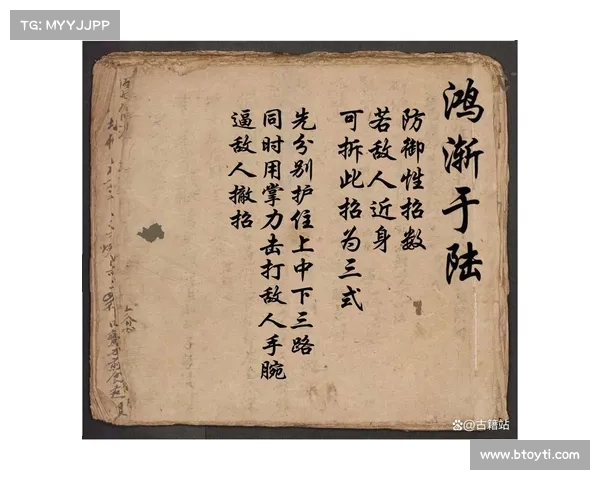 TG: MYYJJPP
鸿渐于陆
防御性招数
若敌人近身
可拆此招为三式
先分别护住上中下三路
同时用掌力击打敌人手腕
逼敌人撤招
@古籍站
www.btoyti.com